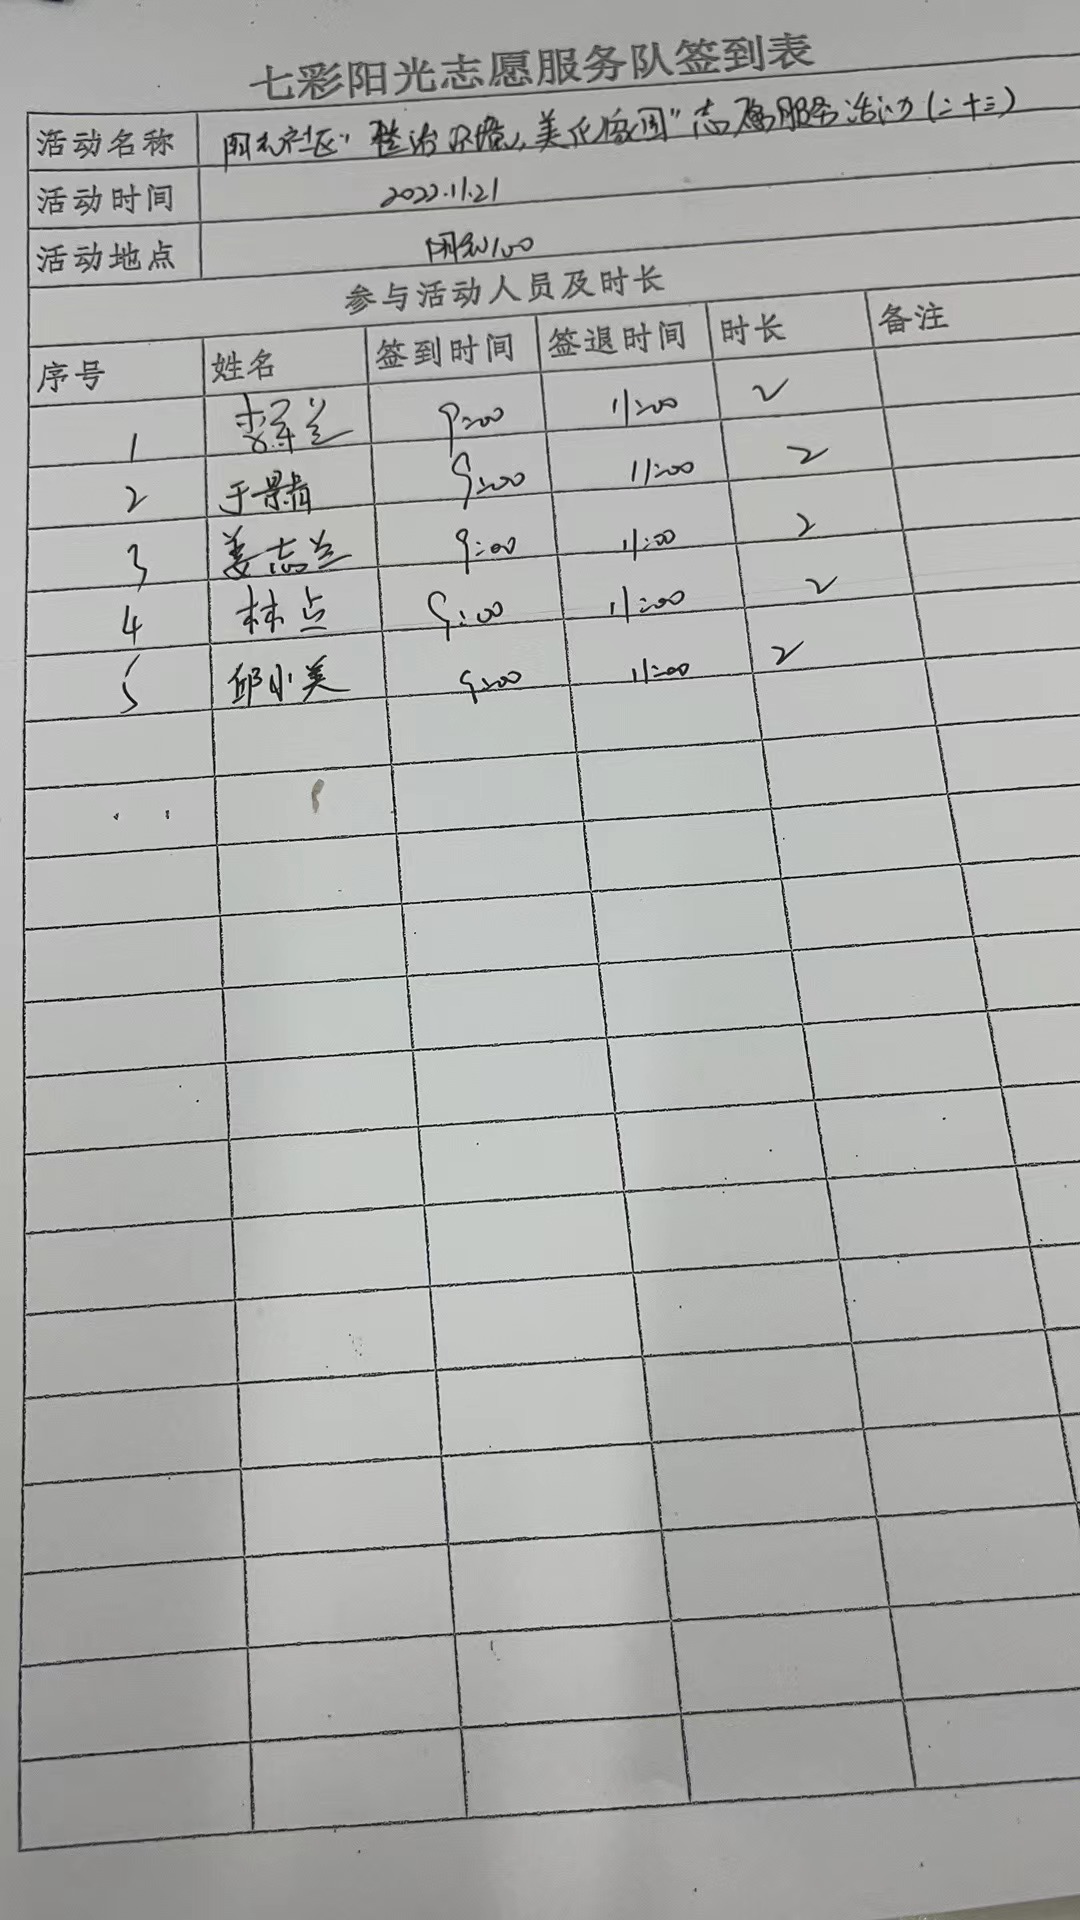 七彩阳光志愿服务队签到表
活动名称 社区"整治环境,美化家园"志愿服务活动(二十三)
活动时间 2022.11.21
活动地点 100
参与活动人员及时长
序号 姓名 签到时间 签退时间 时长 备注
1 李军兰 9:00 11:00 2
2 于景 9:00 11:00 2
3 姜志兰 9:00 11:00 2
4 林点 9:00 11:00 2
5 邱小英 9:00 11:00 2